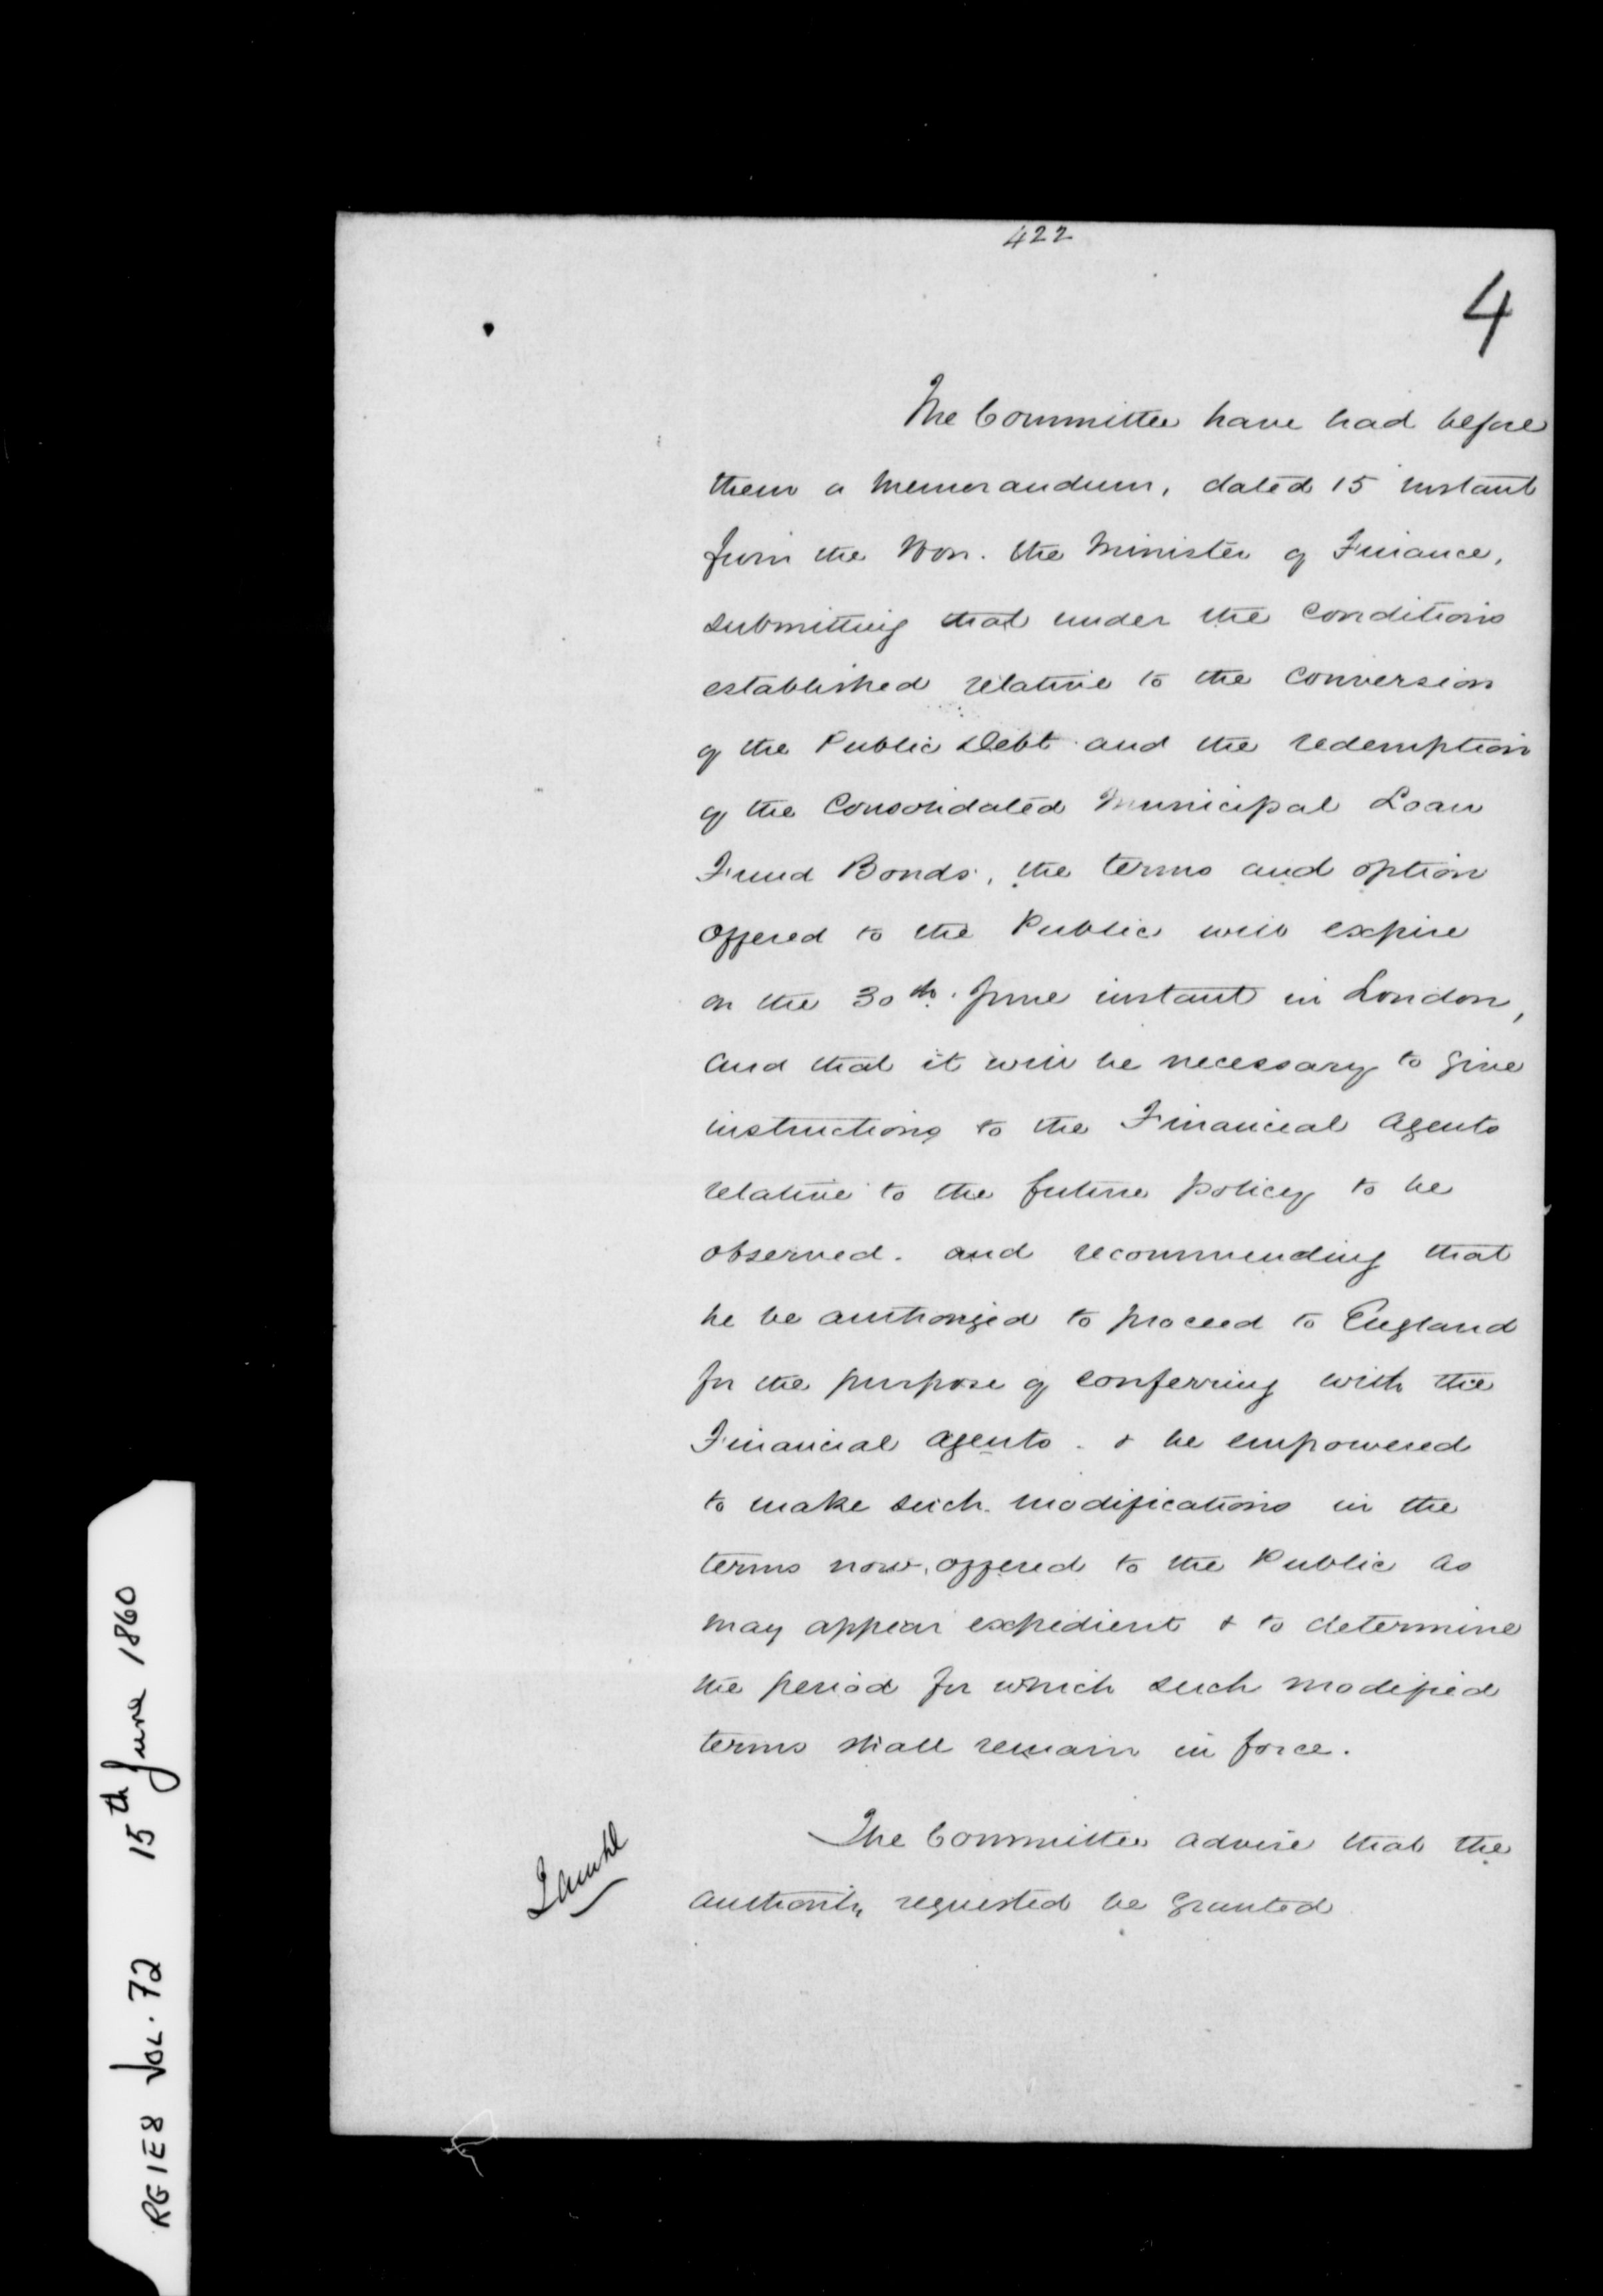 422
4
The Committee have had before
them a Memorandum, dated 15 instant
from the Hon. the Minister of Finance,
submitting that under the conditions
established relative to the conversion
of the Public Debt and the redemption
of the Consolidated Municipal Loan
Fund Bonds, the terms and option
offered to the Public will expire
on the 30th. June instant in London,
and that it will be necessary to give
instructions to the Financial Agents
relative to the future policy to be
observed. and recommending that
he be authorized to proceed to England
for the purpose of conferring with the
Financial Agents. & be empowered
to make such modifications in the
terms now offered to the Public as
may appear expedient & to determine
the period for which such modified
terms shall remain in force.
The Committee advise that the
authority requested be granted
RG1E8 VOL. 72 15th June 1860